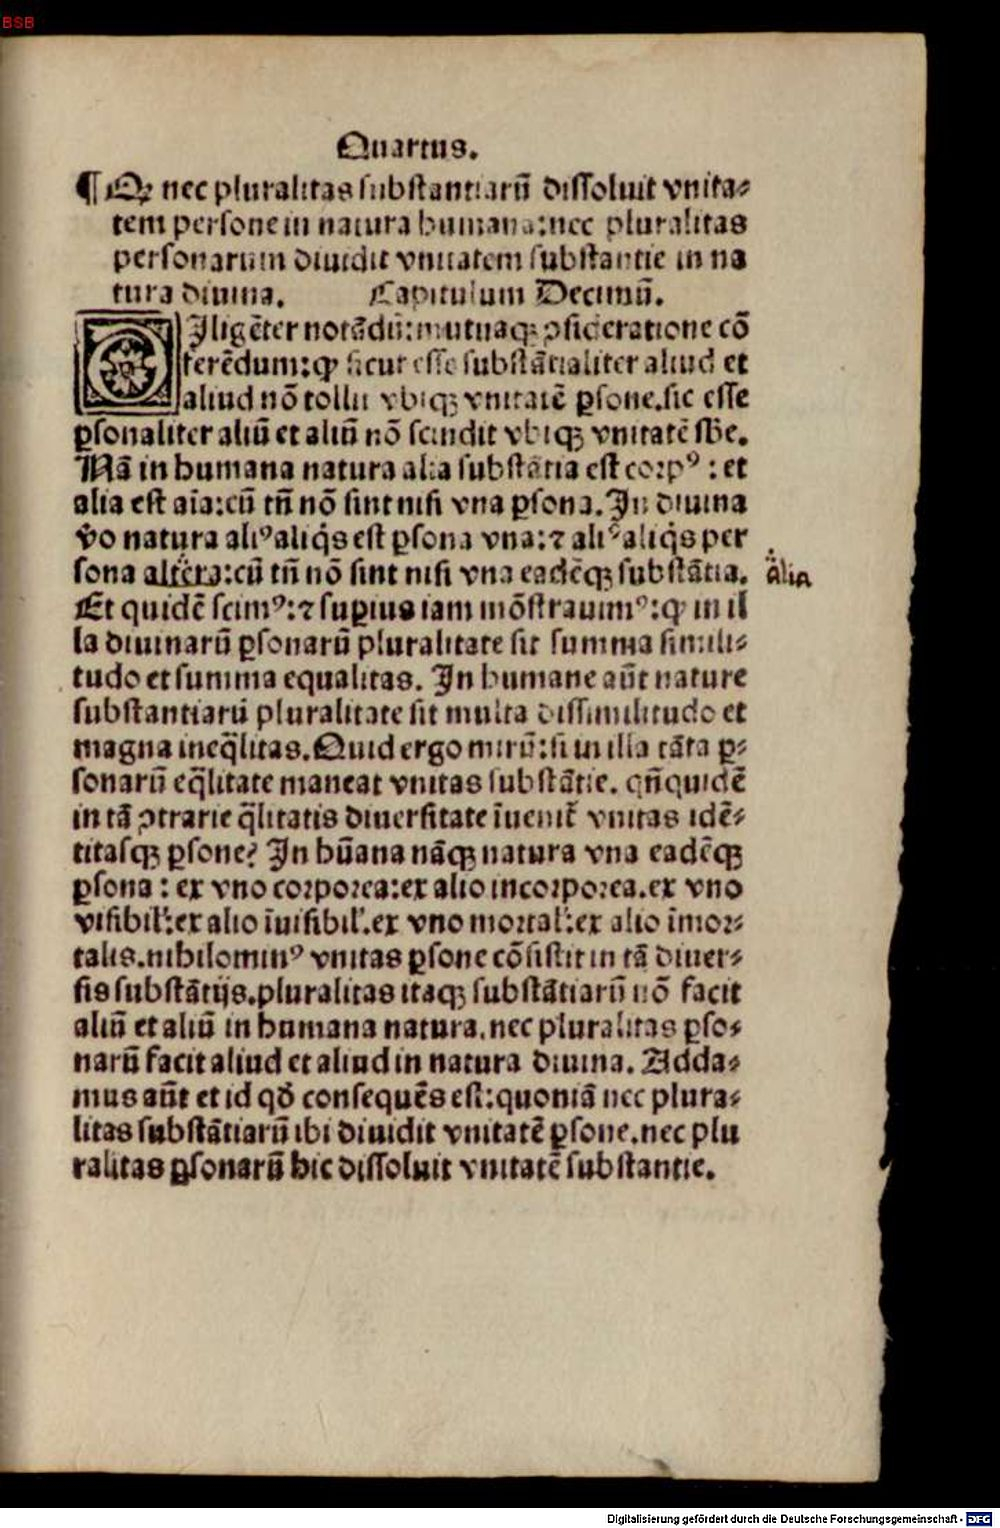 BSB
Quartus.
¶ Qꝫ nec pluralitas substantiarū dissoluit vnita⸗
tem persone in natura humana:nec pluralitas
personarum diuidit vnitatem substantie in na
tura diuina. Capitulum Decimū.
DIligēter notādū:mutuaqꝫ ꝯsideratione cō
ferēdum:ꝙ sicut esse substātialiter aliud et
aliud nō tollit vbiqꝫ vnitatē ꝑsone.sic esse
ꝑsonaliter aliū et aliū nō scindit vbiqꝫ vnitatē sb̄e.
Nā in humana natura alia substātia est corpꝰ : et
alia est aīa:cū tn̄ nō sint nisi vna ꝑsona. In diuina
v̄o natura aliꝰ aliq̇s est ꝑsona vna:⁊ aliꝰ aliq̇s per
sona altera:cū tn̄ nō sint nisi vna eadēqꝫ substātia.
alia
Et quidē scimꝰ:⁊ suꝑius iam mōstrauimꝰ:ꝙ in il
la diuinarū ꝑsonarū pluralitate sit summa simili⸗
tudo et summa equalitas. In humane aūt nature
substantiarū pluralitate sit multa dissimilitudo et
magna ineq̄litas. Quid ergo mirū:si in illa tāta ꝑ⸗
sonarū eq̄litate maneat vnitas substātie. qn̄quidē
in tā ꝯtrarie q̄litatis diuersitate īuenit᷑ vnitas idē⸗
titasqꝫ ꝑsone? In hūana nāqꝫ natura vna eadēqꝫ
ꝑsona : ex vno corporea:ex alio incorporea.ex vno
visibil':ex alio īuisibil'.ex vno mortal':ex alio īmor⸗
talis.nihilominꝰ vnitas ꝑsone cōsistit in tā diuer⸗
sis substātijs.pluralitas itaqꝫ substātiarū nō facit
aliū et aliū in humana natura.nec pluralitas ꝑso⸗
narū facit aliud et aliud in natura diuina. Adda⸗
mus aūt et id qđ consequēs est:quoniā nec plura⸗
litas substātiarū ibi diuidit vnitatē ꝑsone.nec plu
ralitas ꝑsonarū hic dissoluit vnitatē substantie.
Digitalisierung gefördert durch die Deutsche Forschungsgemeinschaft - DFG